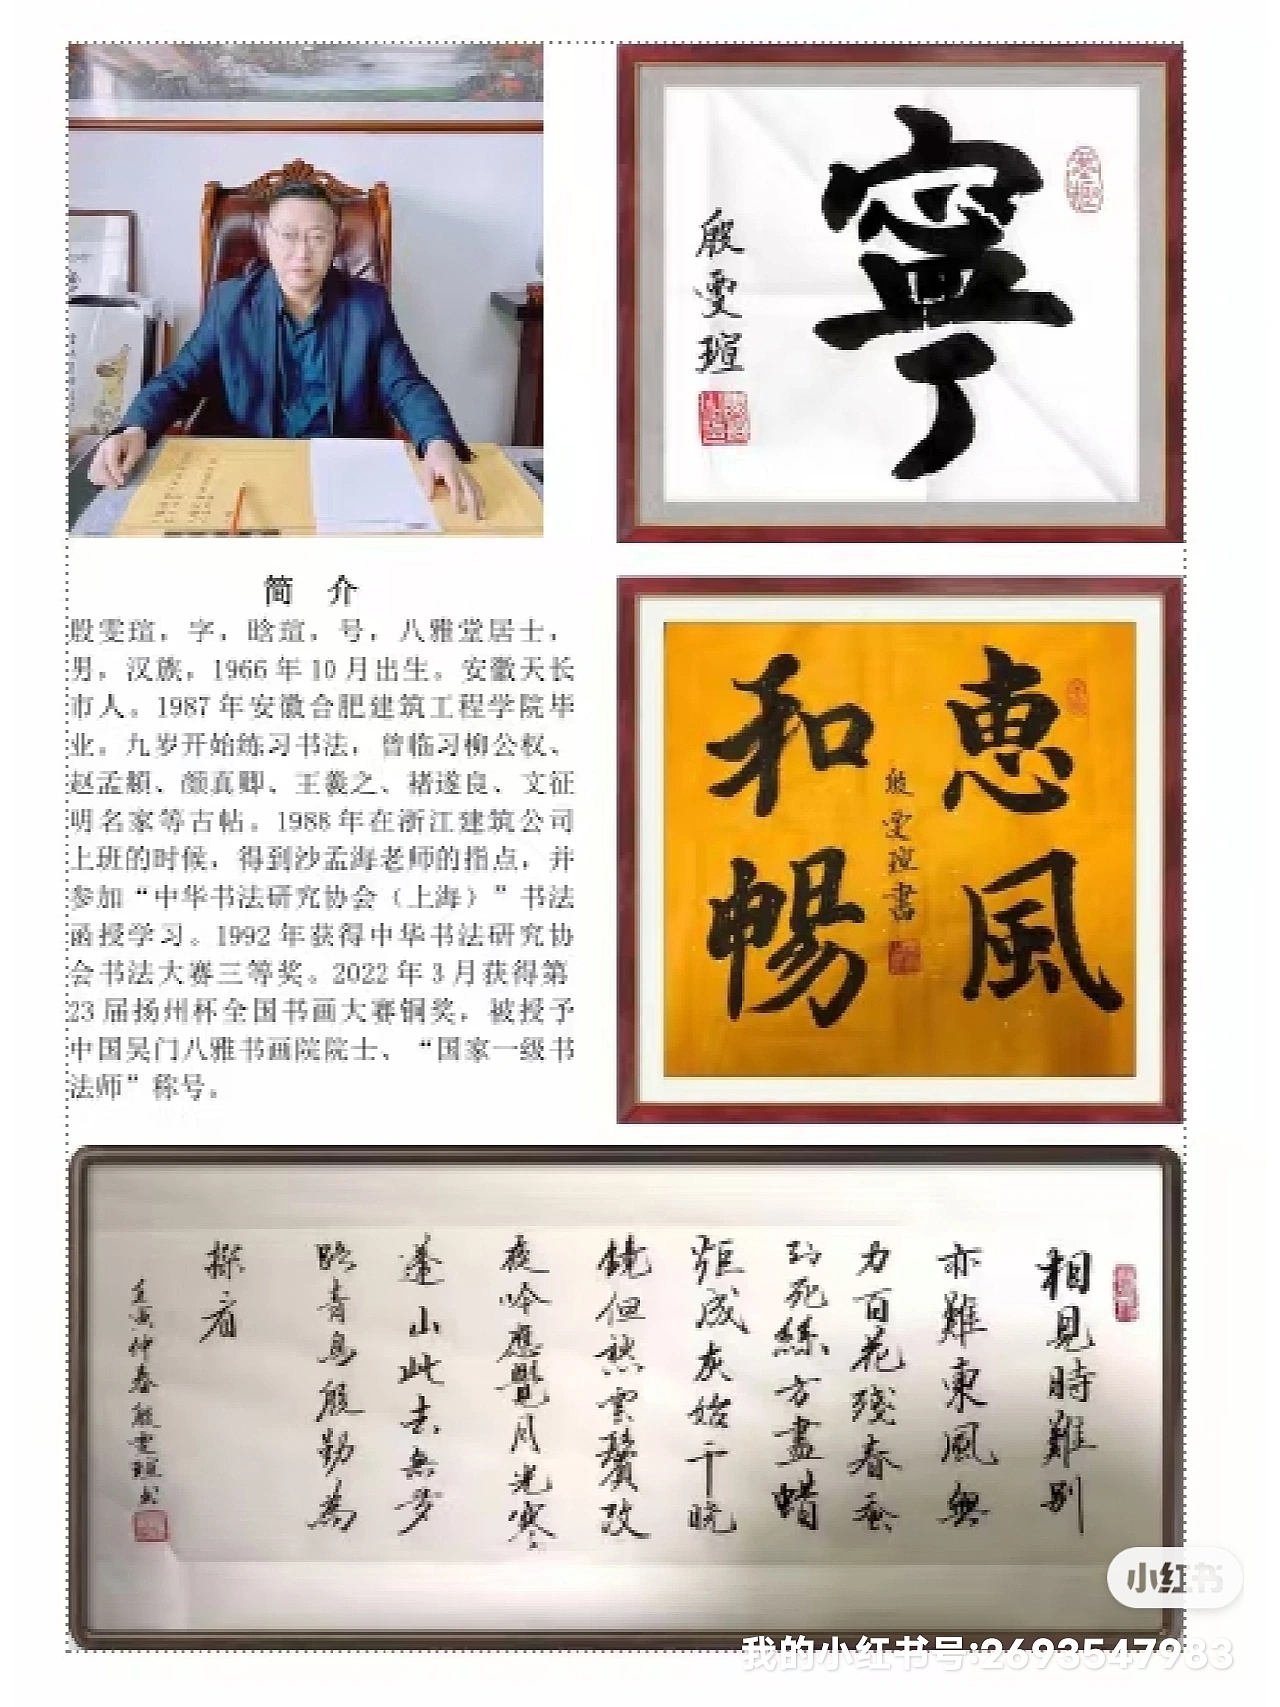 寧
殷雯瑄
简 介
殷雯瑄，字，晗瑄，号，八雅堂居士，
男，汉族，1966年10月出生。安徽天长
市人。1987年安徽合肥建筑工程学院毕
业。九岁开始练习书法，曾临习柳公权、
赵孟頫、颜真卿、王羲之、褚遂良、文征
明名家等古帖。1988年在浙江建筑公司
上班的时候，得到沙孟海老师的指点，并
参加“中华书法研究协会（上海）”书法
函授学习。1992年获得中华书法研究协
会书法大赛三等奖。2022年3月获得第
23届扬州杯全国书画大赛铜奖，被授予
中国吴门八雅书画院院士、“国家一级书
法师”称号。
惠風
和暢
殷雯瑄書
相見時難别
亦難東風無
力百花殘春蚕
到死絲方盡蜡
炬成灰始干晓
镜但愁雲鬓改
夜吟應覺月光寒
蓬山此去無多
路青鳥殷勤為
探看
壬寅仲春殷雯瑄书
小红书
我的小红书号:2693547983